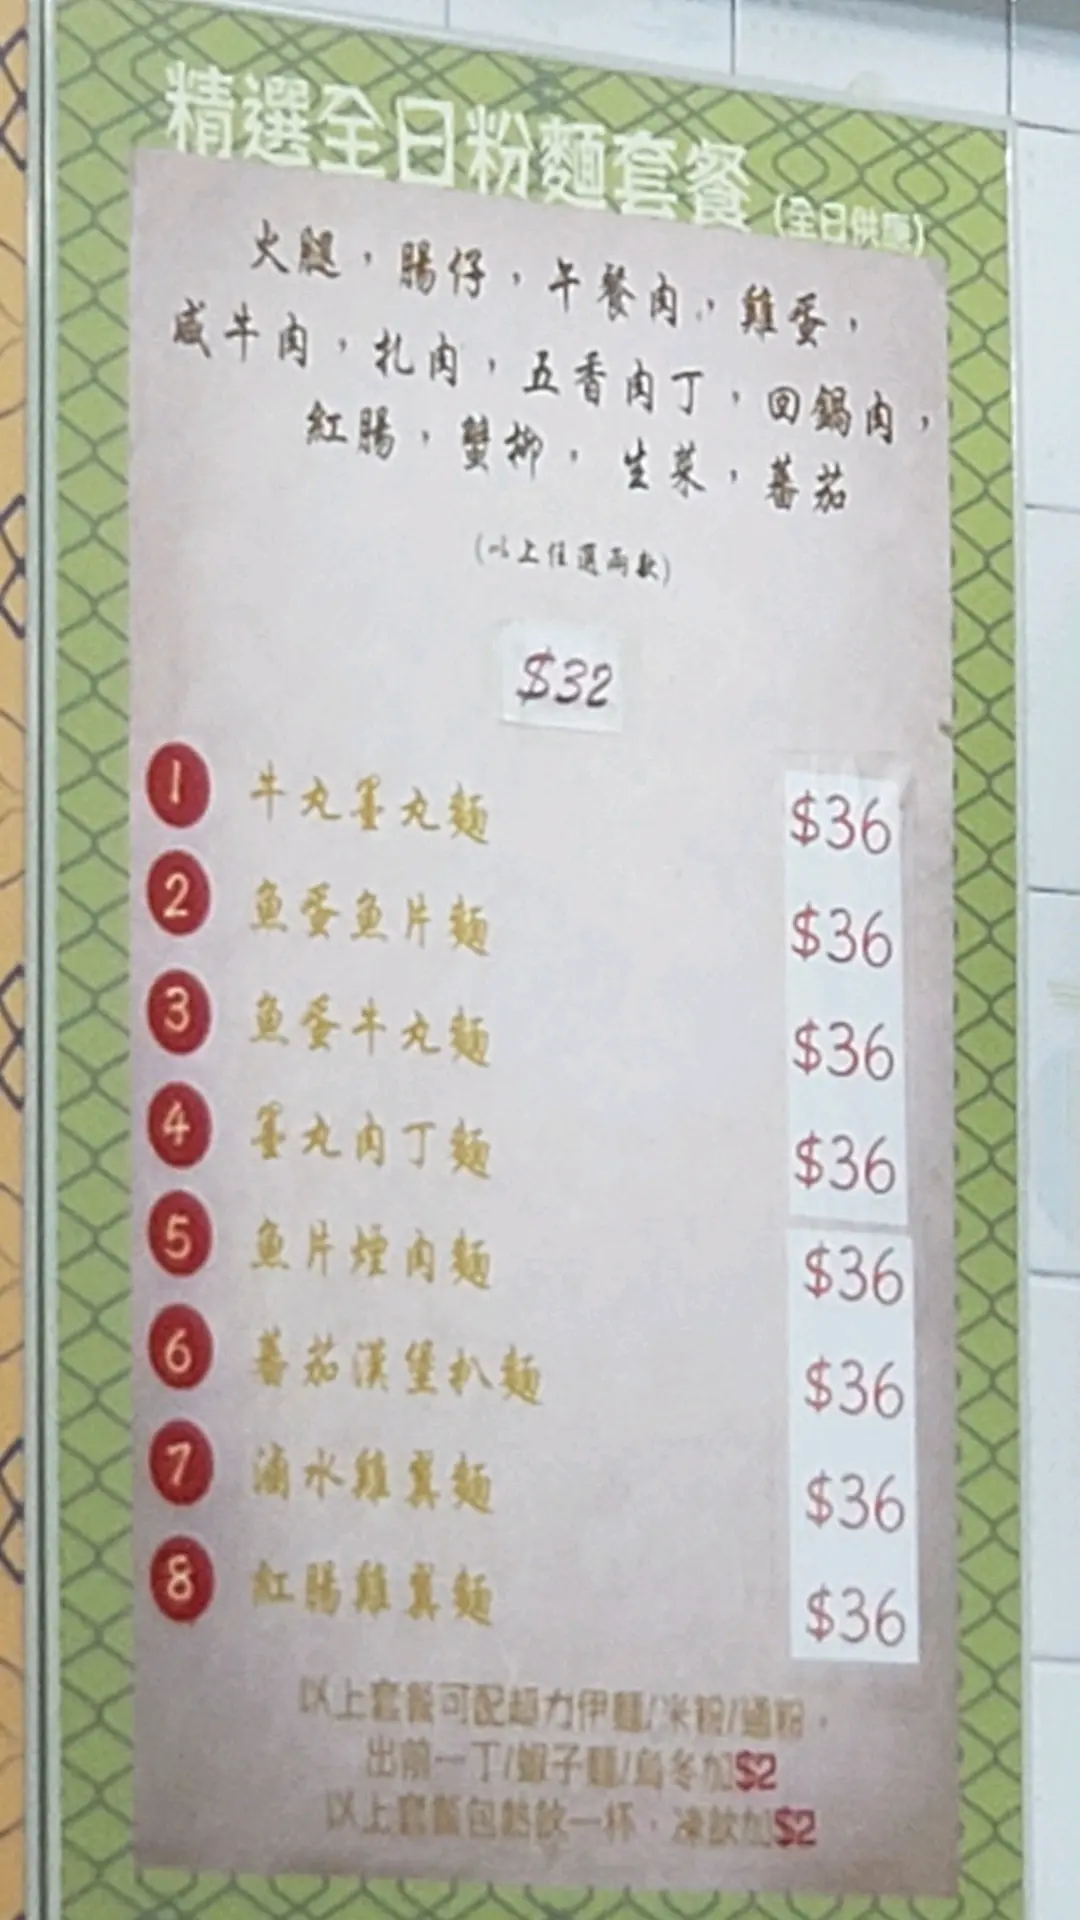 精選全日粉麵套餐 (全日供應)
火腿，腸仔，午餐肉，雞蛋，
咸牛肉，扎肉，五香肉丁，回鍋肉，
紅腸，蟹柳，生菜，蕃茄
(以上任選兩款)
$32
1 牛丸墨丸麵 $36
2 魚蛋魚片麵 $36
3 魚蛋牛丸麵 $36
4 墨丸肉丁麵 $36
5 魚片煙肉麵 $36
6 蕃茄漢堡扒麵 $36
7 滷水雞翼麵 $36
8 紅腸雞翼麵 $36
以上套餐可配超力伊麵/米粉/通粉，
出前一丁/蝦子麵/烏冬加$2
以上套餐包熱飲一杯，凍飲加$2